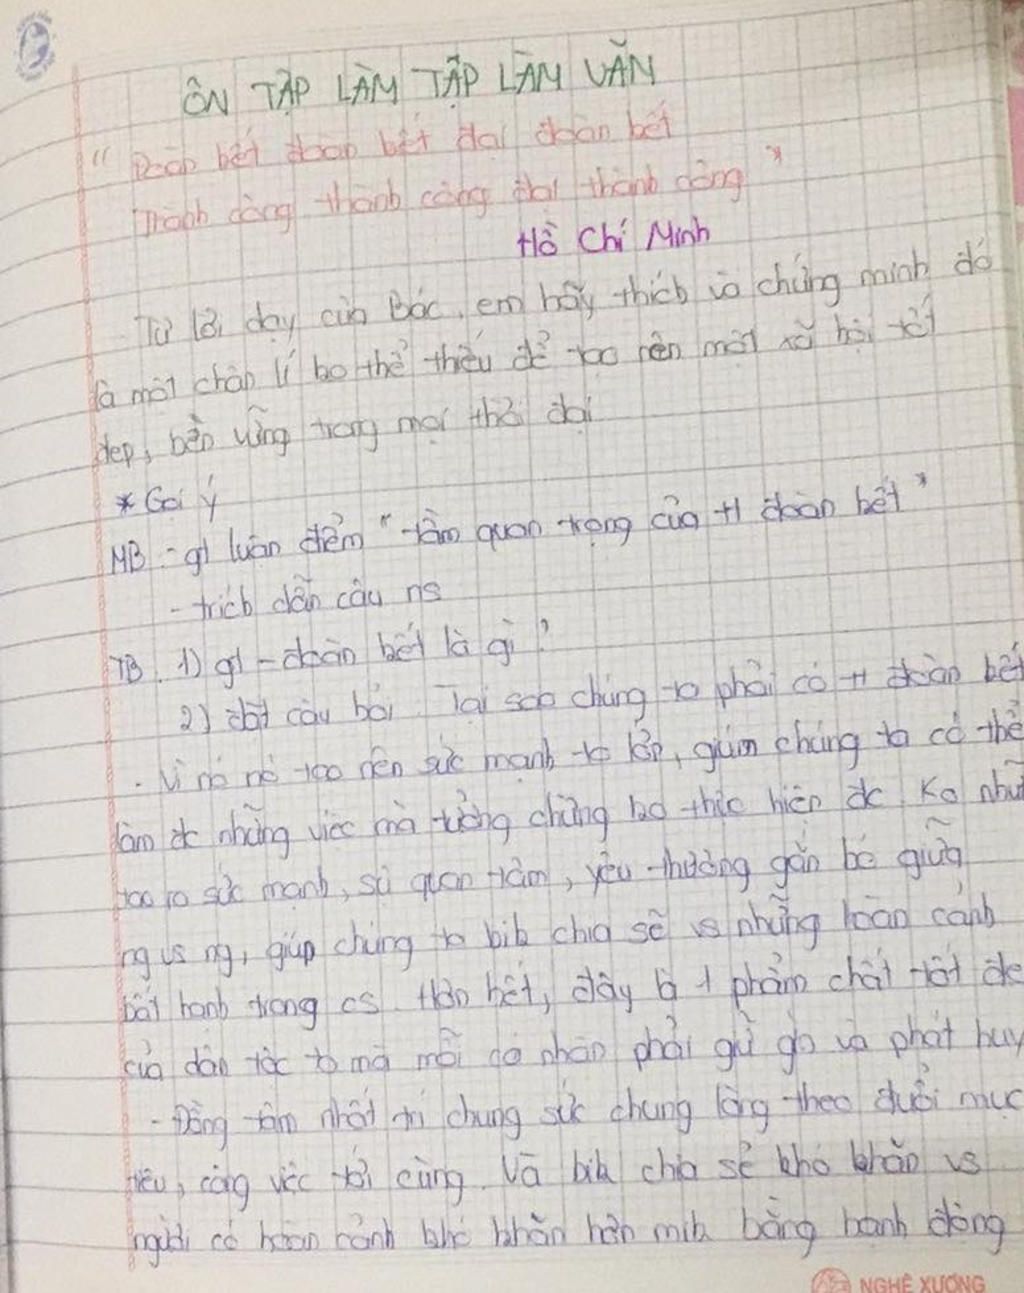 ÔN TẬP LÀM TẬP LÀM VĂN
" Đoàn kết đoàn kết đại đoàn kết
Thành công thành công đại thành công "
Hồ Chí Minh
Từ lời dạy của Bác, em hãy thích và chứng minh đó
là một chân lí ko thể thiếu để tạo nên một xã hội tốt
đẹp, bền vững trong mọi thời đại
* Gợi ý
MB - gt luận điểm " tầm quan trọng của tt đoàn kết "
- trích dẫn câu ns
TB. 1) gt - đoàn kết là gì ?
2) đặt câu hỏi. Tại sao chúng ta phải có tt đoàn kết
- Vì nó nó tạo nên sức mạnh to lớn, giúm chúng ta có thể
làm đc những việc mà tưởng chừng ko thực hiện đc. Ko những
tạo ra sức mạnh, sự quan tâm, yêu thương gắn bó giữa
ng vs ng, giúp chúng ta bik chia sẽ vs những hoàn cảnh
bất hạnh trong cs. Hơn hết, đây là 1 phẩm chất tốt đẹp
của dân tộc ta mà mỗi cá nhân phải giữ gìn và phát huy
- Đồng tâm nhất trí chung sức chung lòng theo đuổi mục
tiêu, công việc tới cùng. Và bik chia sẻ khó khăn vs
người có hoàn cảnh khó khăn hơn mik bằng hành động
NGHỆ XƯƠNG